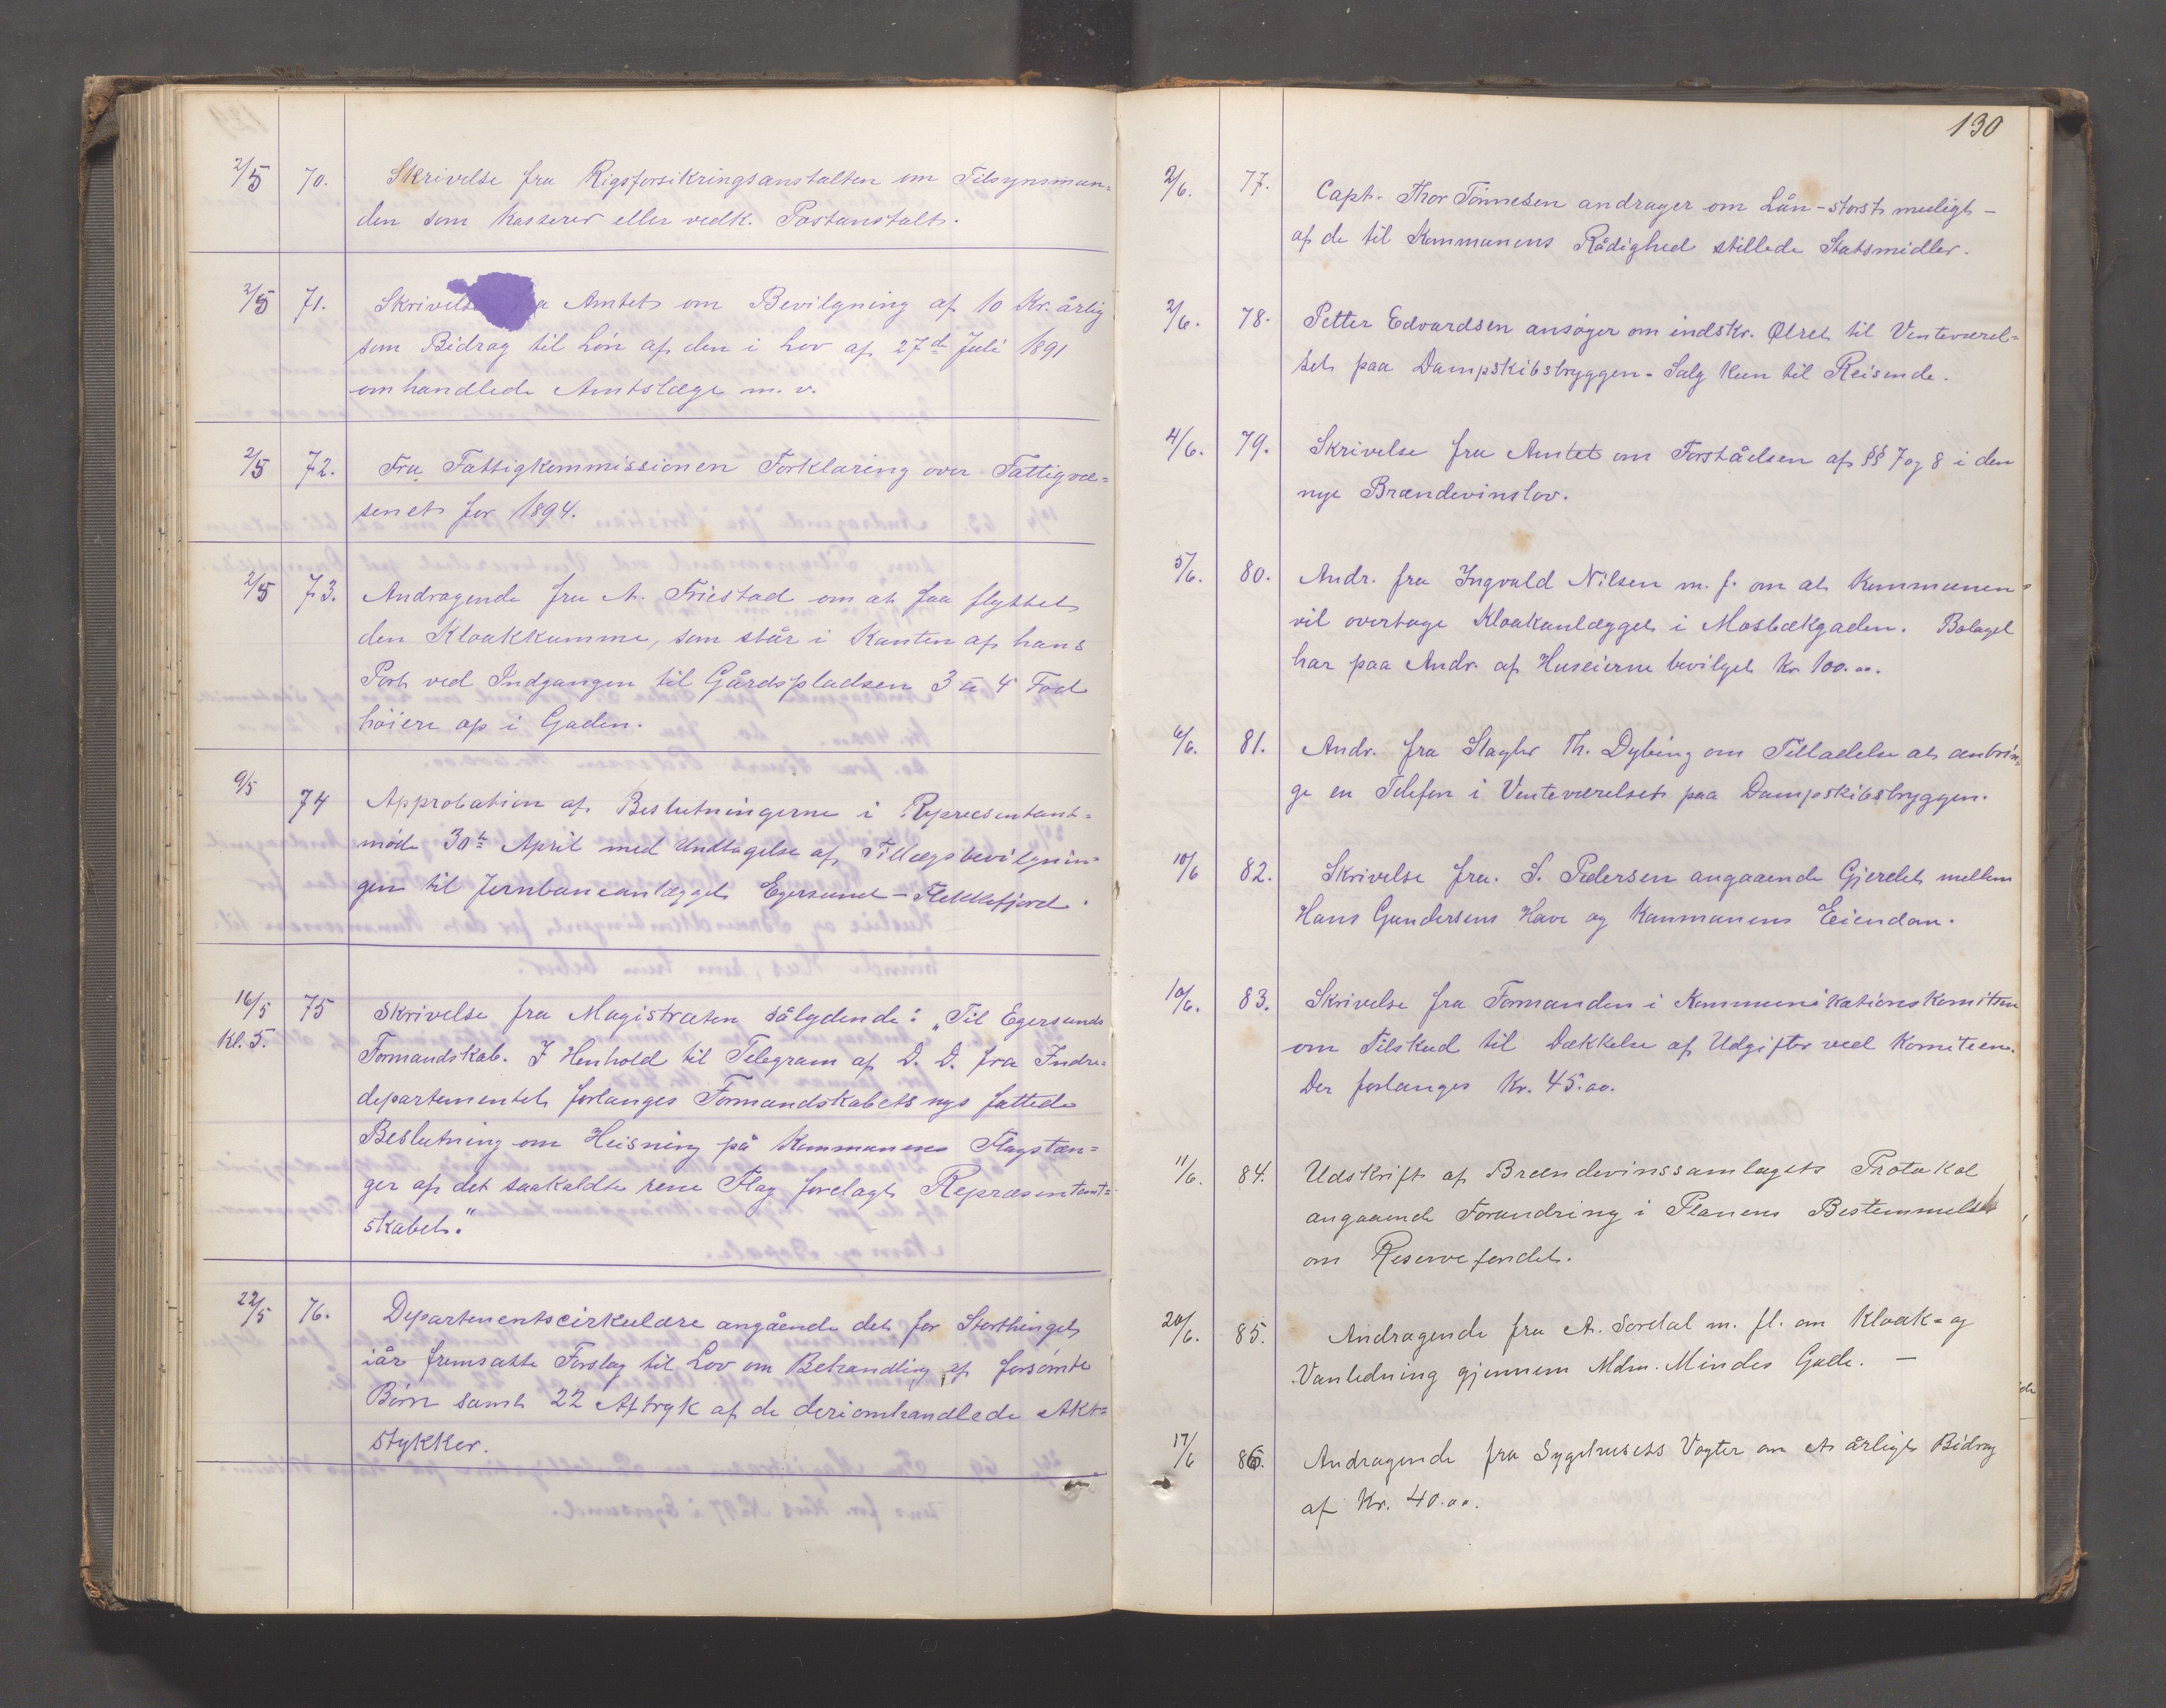 2/5 70. Skrivelse fra Rigsforsikringsanstalten om Tilsynsman=
den som Kasserer eller vedk. Postanstalt.
2/5 71. Skrivelse fra Amtet om Bevilgning af 10 Kr. årlig
som Bidrag til Løn af den i Lov af 27de Juli 1891
omhandlede Amtslæge m. v.
2/5 72. Fra Fattigkommissionen Forklaring over Fattigvæ=
senet for 1894.
2/5 73. Andragende fra A. Friestad om at faa flyttet
den Kloakkumme, som står i Kanten af hans
Port ved Indgangen til Gårdspladsen 3 a 4 Fod
høiere op i Gaden.
9/5 74 Approbation af Beslutningerne i Repræsentant=
møde 30te April med Undtagelse af Tillægsbevilgnin=
gen til Jernbaneanlægget Egersund - Flekkefjord.
16/5 75 Skrivelse fra Magistraten sålydende: "Til Egersunds
Kl. 5. Formandskab. I Henhold til Telegram af D. D. fra Indre=
departementet forlanges Formandskabets nys fattede
Beslutning om Heisning på Kommunens Flagstæn=
ger af det saakaldte rene Flag forelagt Repræsentant=
skabet."
22/5 76. Departementscirkulære angående det for Storthinget
iår fremsatte Forslag til Lov om Behandling af forsømte
Børn samt 22 Aftryk af de deriomhandlede Akt=
stykker.
130
2/6. 77. Capt. Thor Tønnesen andrager om Lån - størst muligt -
af de til Kommunens Rådighed stillede Statsmidler.
2/6. 78. Petter Edvardsen ansøger om indskr. Ølret til Venteværel=
set paa Dampskibsbryggen - Salg kun til Reisende.
4/6. 79. Skrivelse fra Amtet om Forståelsen af §§ 7 og 8 i den
nye Brændevinslov.
5/6. 80. Andr. fra Ingvald Nilsen m. f. om at Kommunen
vil overtage Kloakanlægget i Mosbækgaden. Bolaget
har paa Andr. af Huseierne bevilget Kr 100.00.
6/6. 81. Andr. fra Slagter Th. Dybing om Tilladelse at anbrin=
ge en Telefon i Venteværelset paa Dampskibsbryggen.
10/6 82. Skrivelse fra S. Pedersen angaaende Gjerdet mellem
Hans Gundersens Have og Kommunens Eiendom.
10/6. 83. Skrivelse fra Formanden i Kommunikationskomiteen
om Tilskud til Dækkelse af Udgifter ved Komiteen.
Der forlanges Kr. 45.00.
11/6. 84. Udskrift af Brændevinssamlagets Protokol
angaaende Forandring i Planens Bestemmelse
om Reservefondet.
20/6. 85. Andragende fra A. Sordal m. fl. om Kloak= og
Vanledning gjennem Mdm. Mindes Gade. -
17/6 86. Andragende fra Sygehusets Vogter om et årligt Bidrag
af Kr. 40.00.